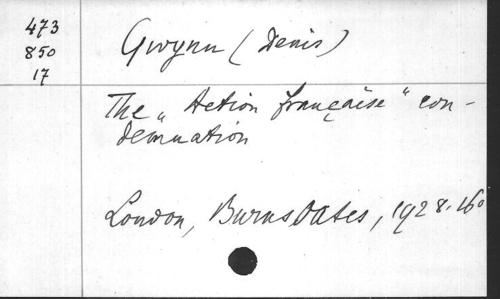 473
850
17
Gwynn (Denis)
The „Action française" con-
demnation
London, Burns Oates, 1928. 16°